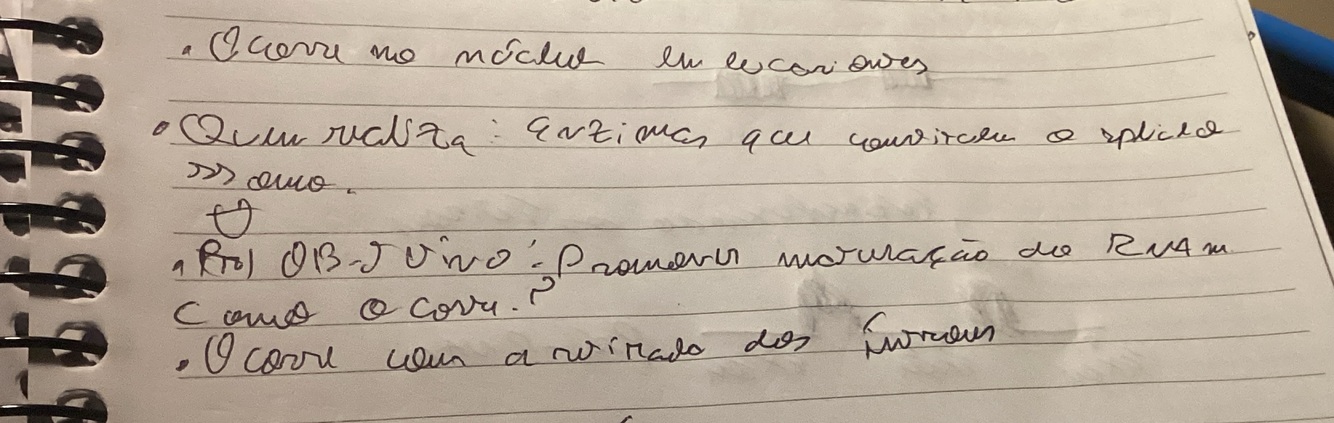 . Ocorre no núcleo em eucariontes
. Quem realiza: Enzimas que constituem o
.
. OBJETIVO: Promover maturação do RNAm
Como ocorre.?
. Ocorre com a retirada dos íntrons